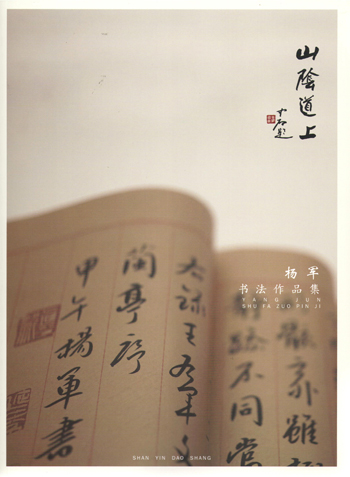 山陰道上
杨军
书法作品集
YANG JUN
SHU FA ZUO PIN JI
雖
趣不同當
右録王羲之
蘭亭序
甲午楊軍書
SHAN YIN DAO SHANG